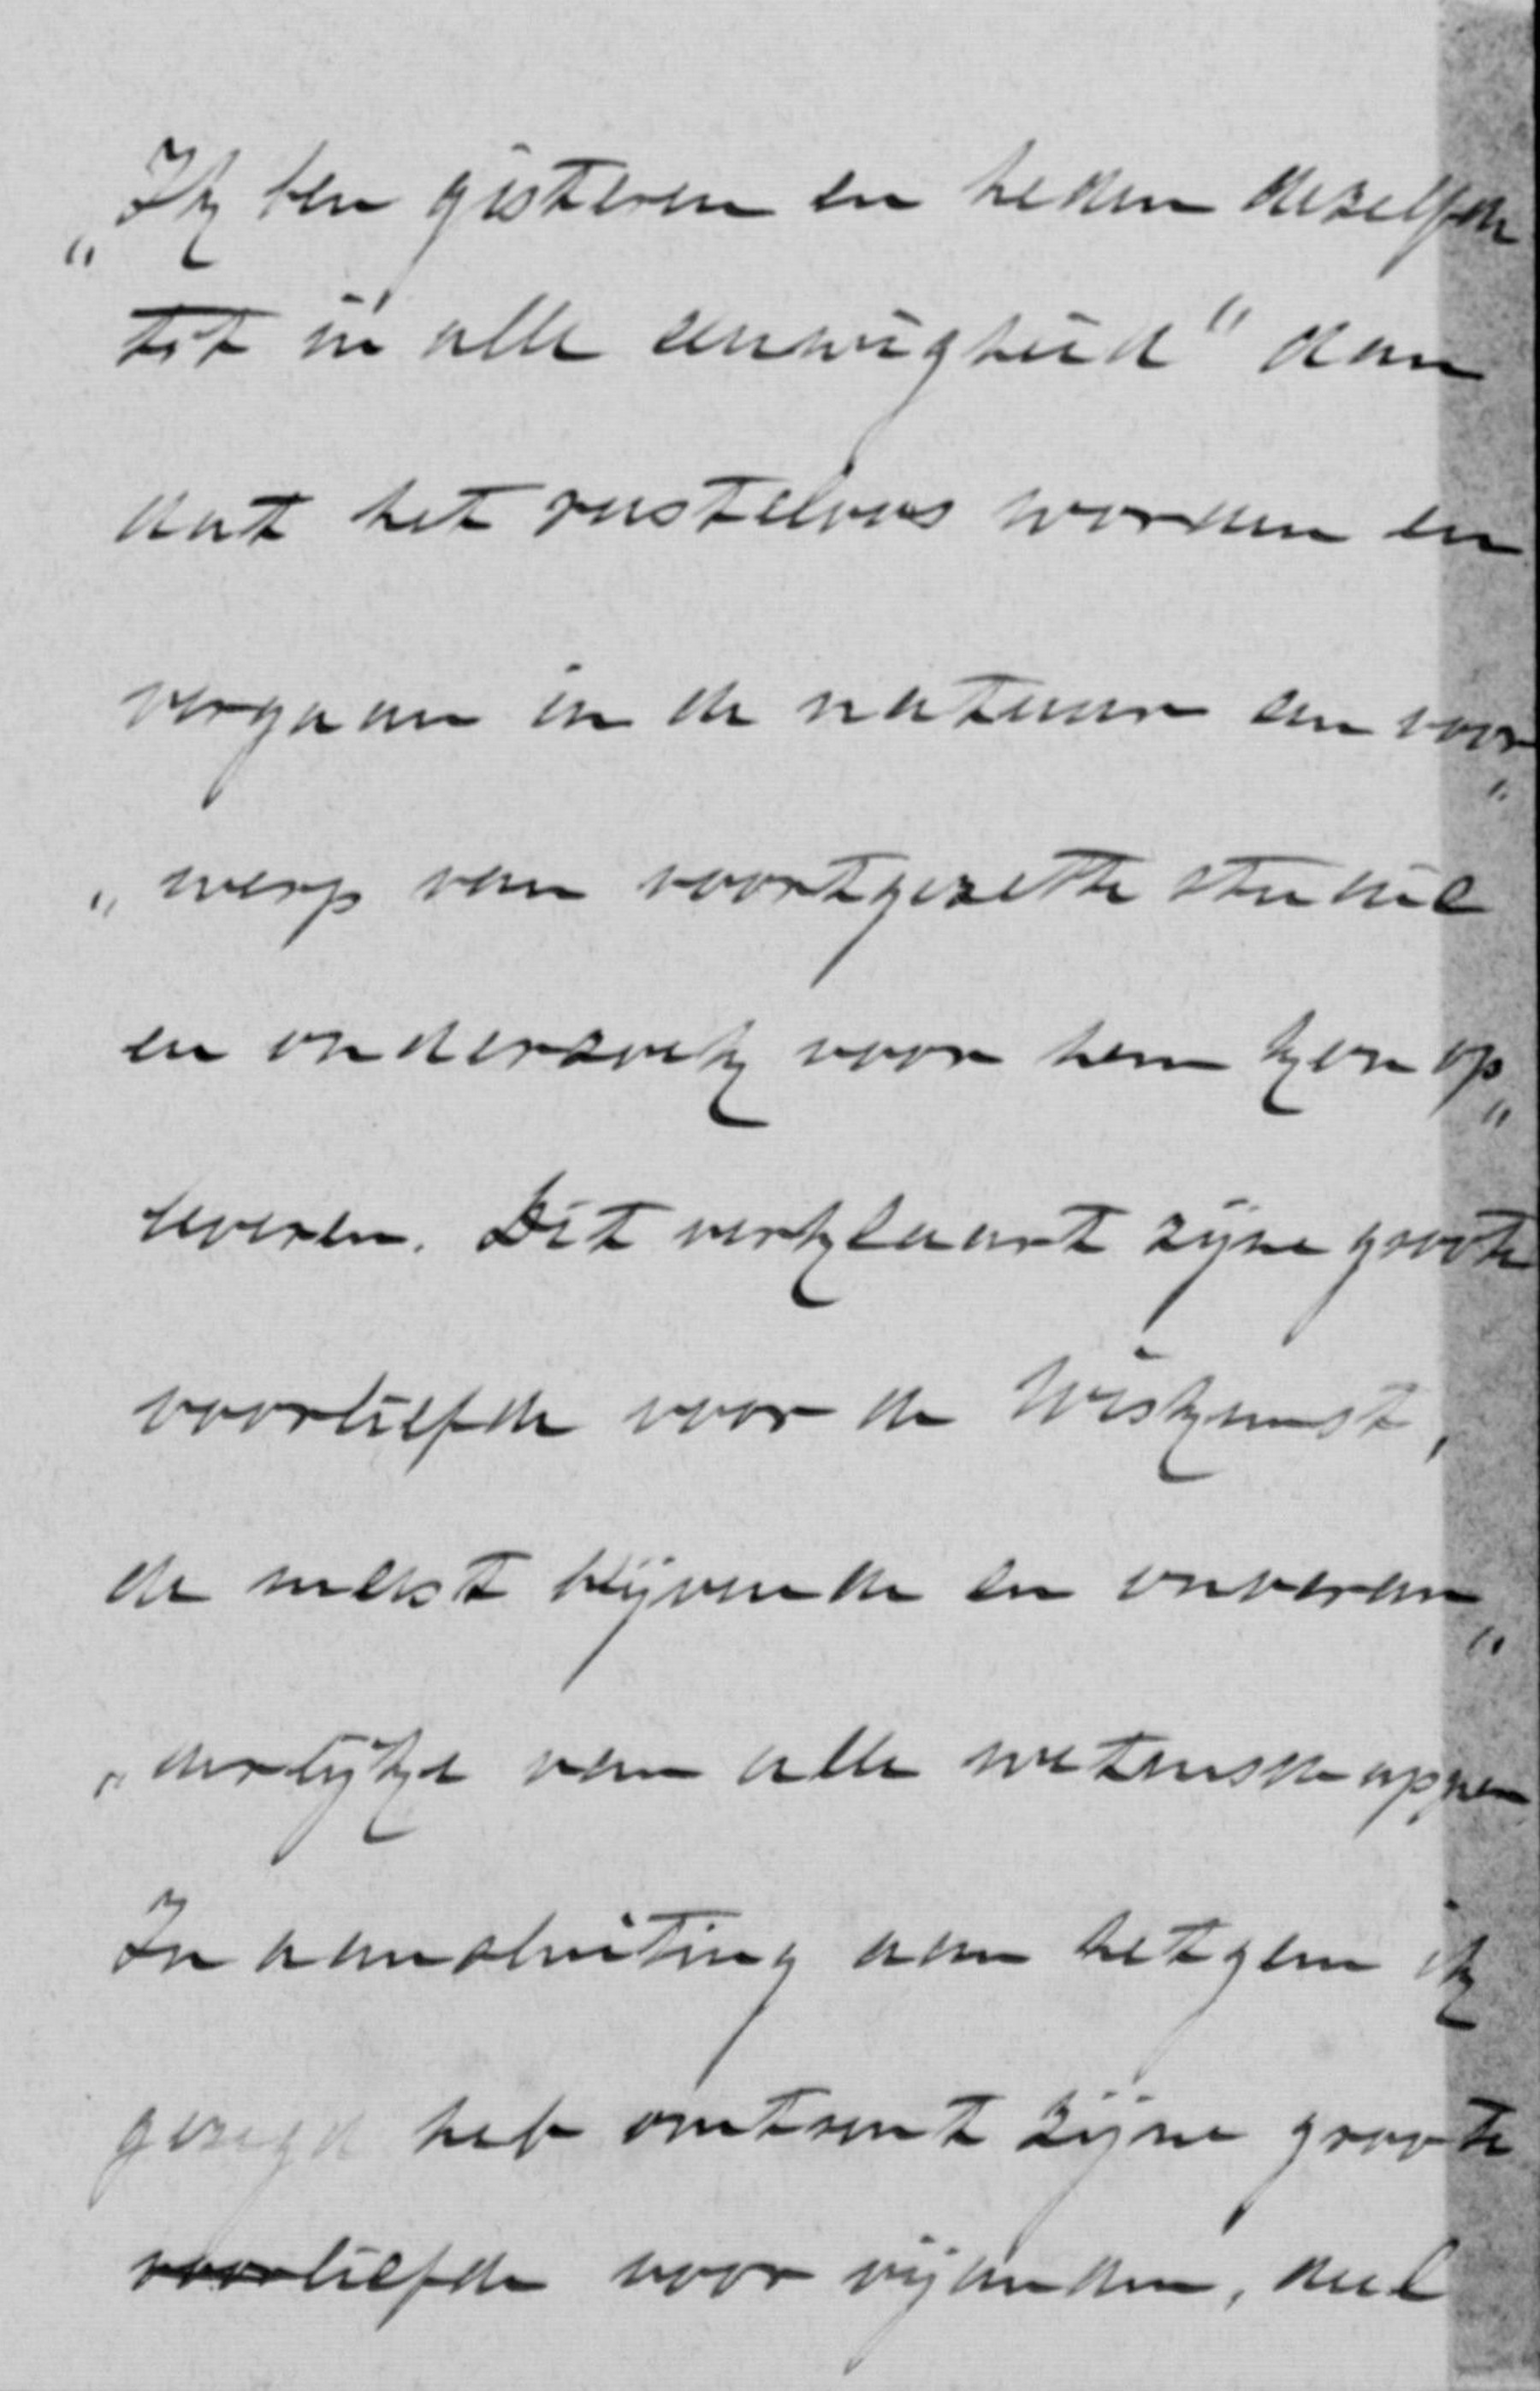 „Ik ben gisteren en heden dezelfde
tot in alle eeuwigheid" dan
dat het rusteloos worden en
vergaan in de natuur een voor„
„werp van voortgezette studie
en onderzoek voor hem kon op„
leveren. Dit verklaart zijne groote
voorliefde voor de Wiskunst,
de meest blijvende en onveran„
„derlijke van alle wetenschappen
In aansluiting aan hetgeen ik
gezegd heb omtrent zijne groote
voorliefde voor vijanden, deel